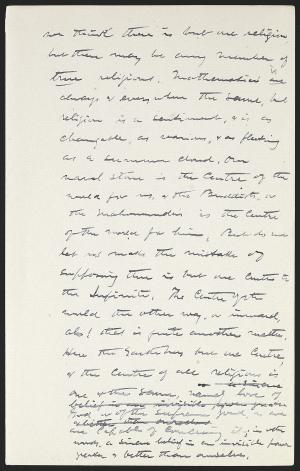 nor think there is but one religion
but there may be any number of
true religions. Mathematics is
always & every where the same, but
religion is a sentiment, & is as
changeable, as various, & as fleeting
as a summer cloud. Our
natal stone is the Centre of the
world for us, & the Buddhist's or
the Mahommedan's is the Centre
of the world for him, But do
let us not make the mistake of
supposing there is but one Centre to
the Infinite. The Centre of the
world the other way, or inward,
ah! that is quite another matter.
Here the have but one Centre,
& the Centre of all religions is
one & the same, namely love of
God, or of the Supreme good, in
are capable of it; in other
words, a sincere belief in an invisible power
greater & better than ourselves.